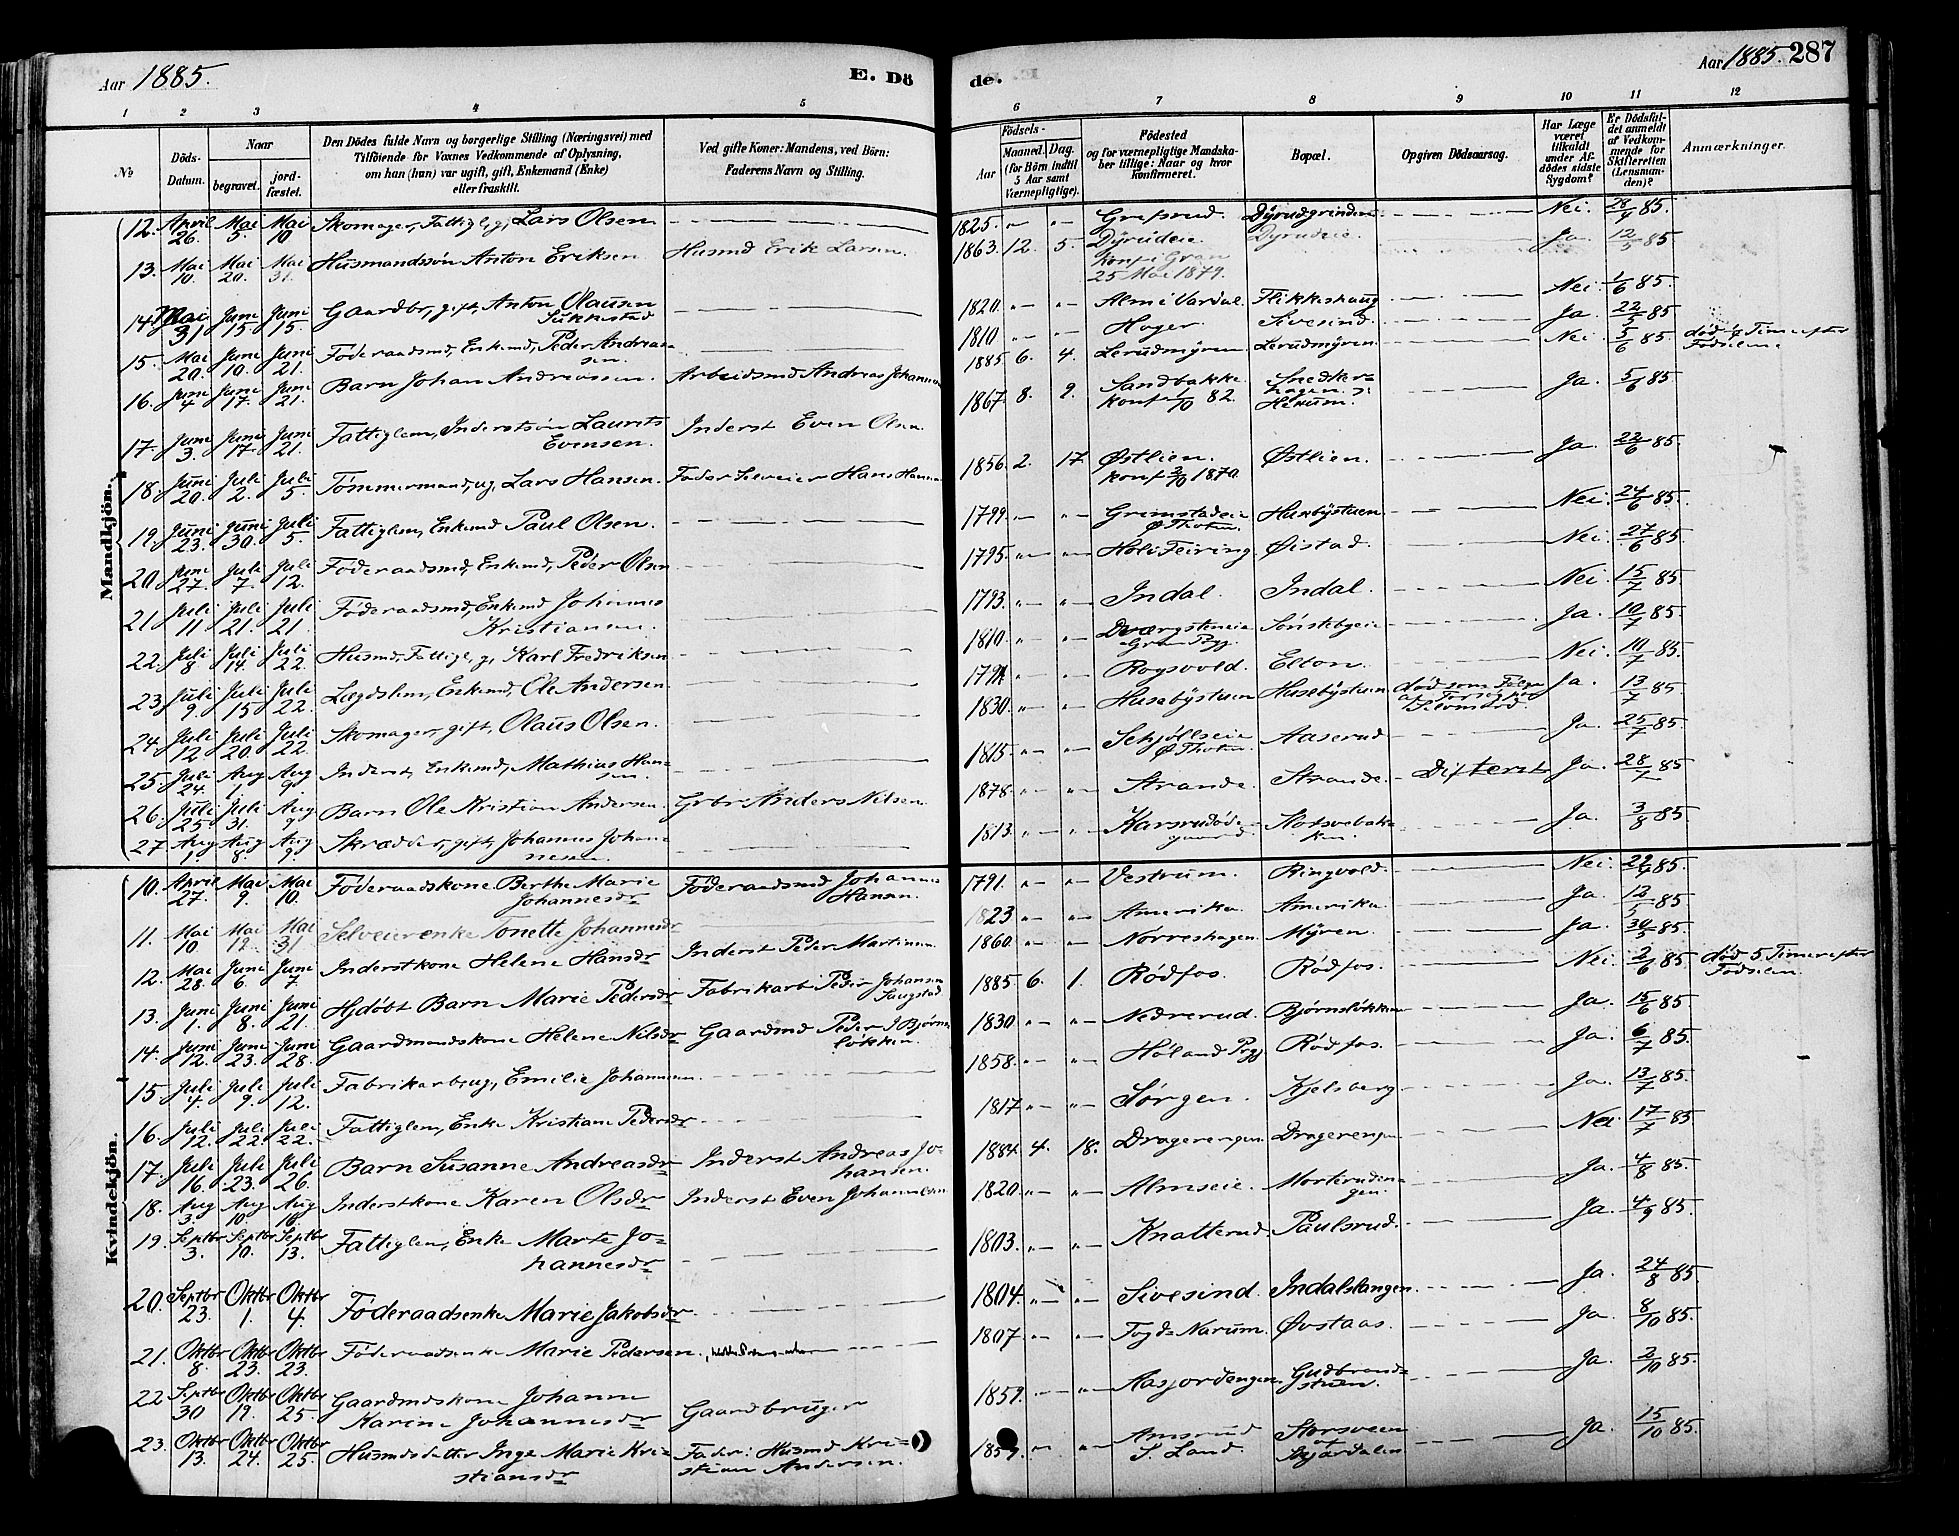 Aar 1885.
E. Dö
de.
Aar 1885. 287
1 2 3 4 5 6 7 8 9 10 11 12
№
Döds-
Datum.
Naar
begravet.
jord-
fæstet.
Den Dödes fulde Navn og borgerlige Stilling (Næringsvei) med
Tilföiende for Voxnes Vedkommende af Oplysning,
om han (hun) var ugift, gift, Enkemand (Enke)
eller fraskilt.
Ved gifte Koner: Mandens, ved Börn:
Faderens Navn og Stilling.
Födsels-
Aar
Maaned. Dag.
(for Börn indtil
5 Aar samt
Værnepligtige).
Födested
og for værnepligtige Mandska-
ber tillige: Naar og hvor
konfirmeret.
Bopæl.
Opgiven Dödsaarsag.
Har Læge
været
tilkaldt
under Af-
dödes sidste
Sygdom?
Er Dödsfal-
det anmeldt
af Vedkom-
mende for
Skifteretten
(Lensman-
den)?
Anmærkninger.
Mandkjön.
12. April 26. Mai 5. Mai 10 Skomager, Fattigl, g, Lars Olsen 1825. Grefsrud. Dyrudgrinden Nei. 28/4 85.
13. Mai 10. Mai 20. Mai 31. Husmandssön Anton Eriksen Husmd Erik Larsen. 1863. 12. 5. Dyrudeie. Dyrudeie. Ja. 12/5 85
Konf i Gran
25 Mai 1879.
14. Mai 31 Juni 15. Juni 15. Gaardbr, gift, Anton Olausen 1820. Alm i Vardal. Flikkeshaug Nei 1/6 85.
Sukkestad
15. Mai 20. Juni 10. Juni 21. Föderaadsmd, Enkemd, Peder Andrea- 1810. Hoger. Sivesind. Ja. 22/5 85
sen.
16. Juni 4 Juni 17. Juni 21. Barn Johan Andreassen. Arbeidsmd Andreas Johannes 1885 6. 4. Lerudmyren Lerudmyren. Nei. 5/6 85. död Timer efter
Födselen.
17. Juni 3. Juni 17. Juni 21. Fattiglem, Inderstsön Laurits Inderst Even Olsen 1867. 8. 2. Sandbakke. Ja. 5/6 85
Evensen. konf 1/10 82.
18. Juni 20. Juli 2. Juli 5. Tömmermand, ug, Lars Hansen. Fader Selveier Hans Hansen 1856. 2. 17. Østlien. Østlien. Ja. 22/6 85
konf 2/10 1870.
19. Juni 23. Juni 30. Juli 5. Fattiglem, Enkemd Paul Olsen. 1799. Grimstadeie Husebystuen Nei. 24/6 85.
Ø. Thoten.
20 Juni 27. Juli 7. Juli 12. Föderaadsmd, Enkemd, Peder Olsen 1795. Holi Feiring Øistad. Nei. 27/6 85.
21 Juli 11 Juli 21. Juli 21. Föderaadsmd, Enkemd Johannes 1793. Indal. Indal. Nei. 15/7 85.
Kristiansen.
22. Juli 8 Juli 14. Juli 22. Husmd, Fattigl, g, Karl Fredriksen 1810. Dvergsteneie Sönstebyeie Ja. 10/7 85.
Gran Pgj.
23 Juli 9. Juli 15 Juli 22. Lægdslem, Enkemd, Ole Andersen. Rogsvold. Elton. Nei. 10/7 85.
24. Juli 12 Juli 20. Juli 22. Skomager, gift, Olaus Olsen. 1830. Husebystuen Husebystuen död som Fölge Ja. 13/7 85.
af Forsög paa
Selvmord
25. Juli 24. Aug 1. Aug 9. Inderst, Enkemd, Mathias Han- 1815. Schjöllseie Aaserud Ja. 25/7 85.
sen. Ø Thoten.
26. Juli 25. Juli 31. Aug 9. Barn Ole Kristian Andersen. Grbr Anders Nilsen. 1878. Strande. Strande. Difterit Ja. 28/7 85
27 Aug 1. Aug 8. Aug 9 Skrædder, gift, Johannes Johan- 1813. Ja. 3/8 85.
nesen.
Kvindekjön.
10. April 27. Mai 9. Mai 10. Föderaadskone Berthe Marie Föderaadsmd Johannes 1791. Vestrum. Ringvold. Nei. 85.
Johannesdr Hansen.
11. Mai 10 Mai 19. Mai 31 Selveierenke Tonette Johannesdr 1823 Amerika. Amerika. Ja. 12/5 85
12. Mai 28. Juni 6. Juni 7. Inderstkone Helene Hansdr Inderst Peder Martinsen 1860. Nörreshagen. Myren. Ja. 30/5 85.
13. Juni 1. Juni 8. Juni 21. Hjdöbt Barn Marie Pedersdr Fabrikarb Peder Johansen 1885. 6. 1. Rödfos. Rödfos. Nei. 2/6 85. död 5 Timer efter
Saugstad Födselen
14. Juni 12. Juni 23. Juni 28. Gaardmandskone Helene Nilsdr Gaardmd Peder J Björns- 1830. Nedrerud. Björnslökken Ja. 15/6 85
lökken.
15 Juli 4. Juli 9. Juli 12. Fabrikarb, ug, Emilie Johannesen 1858. Höland Pgj Rödfos. Ja. 6/7 85.
16. Juli 12. Juli 22. Juli 22. Fattiglem, Enke Kristiane Pedersdr 1817 Sörgen. Kjelsberg Ja. 13/7 85.
17. Juli 16. Juli 23. Juli 26. Barn Susanne Andreasdr Inderst Andreas Jo- 1884. 4. 18. Dragerengen. Dragerengen Nei 17/7 85
hansen.
18. Aug 3. Aug 10. Aug 16. Inderstkone Karen Olsdr Inderst Even Johannesen 1820. Almseie. Morteruden- Ja. 4/8 85.
gen.
19. Septbr 3. Septbr 10. Septbr 13. Fattiglem, Enke Marte Jo- 1803. Knatterud. Paulsrud. Ja. 4/9 85.
hannesdr
20. Septbr 23. Oktbr 1. Oktbr 4. Föderaadsenke Marie Jakobsdr 1804. Sivesind. Indalstangen. Ja. 24/8 85
21. Oktbr 8. Oktbr 23. Oktbr 23. Föderaadsenke Marie Pedersen. 1807. Narum. Øvstaas. Ja. 8/10 85.
22 Septbr 30 Oktbr 19. Oktbr 25. Gaardmdskone Johanne Gaardbruger 1859. Aasjordengen. Gudbrands- Ja. 2/10 85.
Karine Johannesdr stuen.
23. Oktbr 13. Oktbr 24. Oktbr 25. Husmdsdatter Inge Marie Kri- Fader: Husmd Kri- Amsrud Storsveen Ja. 15/10 85.
stiansdr stian Andersen. S. Land.